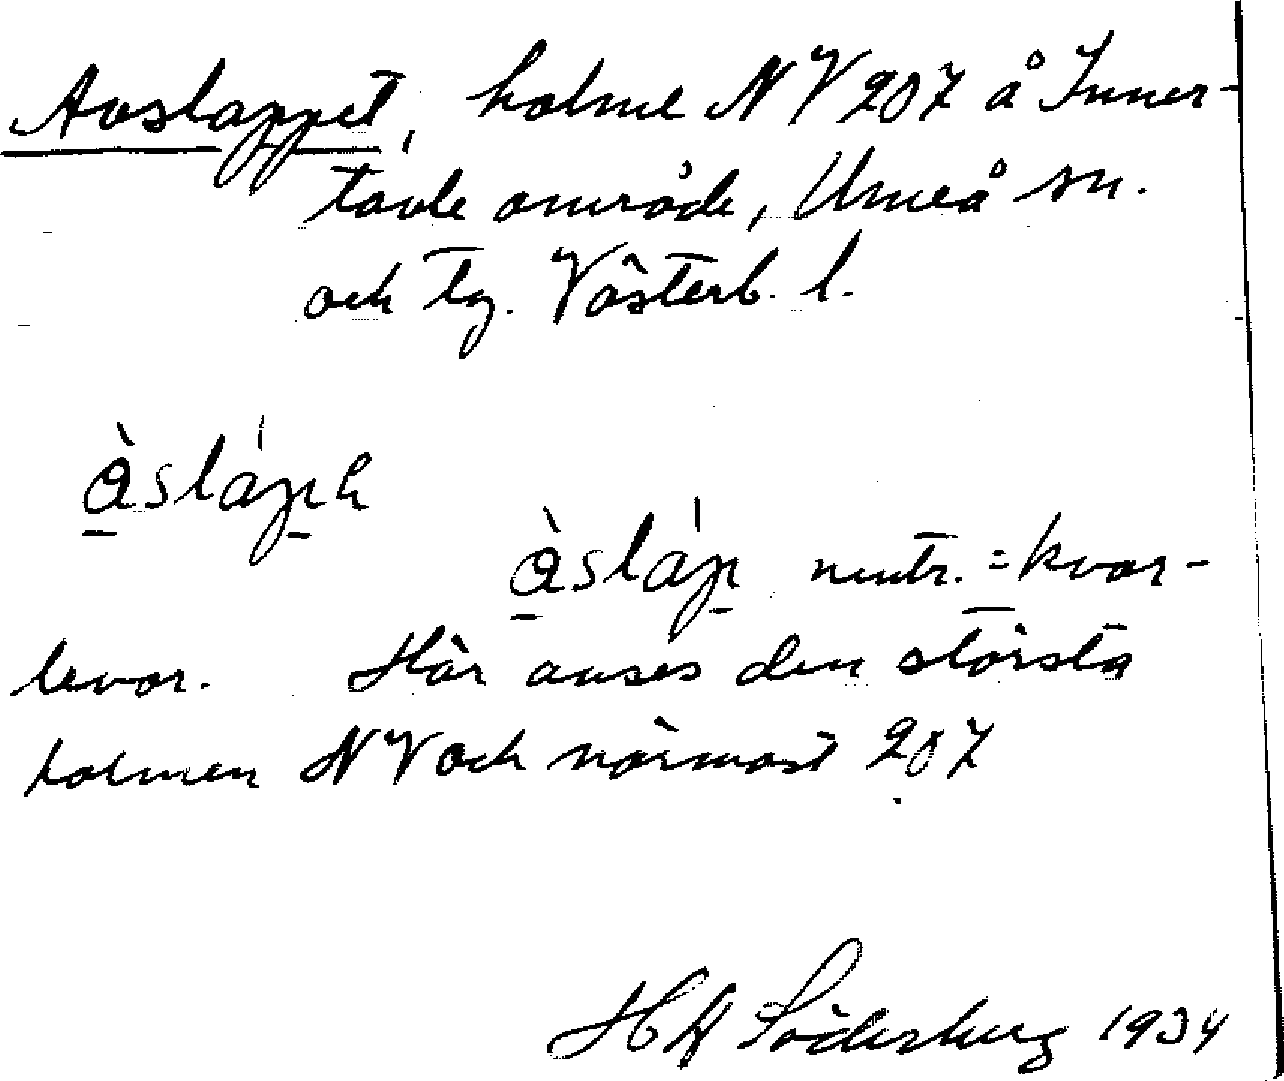 Avslappet, holme NV 207 å Inner-
tavle område, Umeå sn.
och tg. Västerb. l.
àsláph
àsláp neutr. = kvar-
levor. Här anses den största
holmen NV och närmast 207
Söderberg 1934